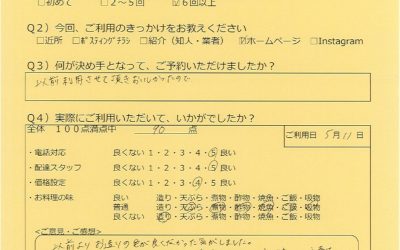 □初めて □2～5回 ☑6回以上
Q2）今回、ご利用のきっかけをお教えください
□近所 □ﾎﾟｽﾃｨﾝｸﾞﾁﾗｼ □紹介（知人・業者） ☑ホームページ □Instagram
Q3）何が決め手となって、ご予約いただけましたか？
以前利用させて頂きおいしかったので
Q4）実際にご利用いただいて、いかがでしたか？
全体 100点満点中 90 点
ご利用日 5月11日
・電話対応 良くない 1・2・3・4・⑤ 良い
・配達スタッフ 良くない 1・2・3・4・⑤ 良い
・価格設定 良くない 1・2・3・④・5 良い
・お料理の味 良い 造り・天ぷら・煮物・酢物・焼魚・ご飯・吸物
普通 造り・天ぷら・煮物・酢物・焼魚・ご飯・吸物
良くない 造り・天ぷら・煮物・酢物・焼魚・ご飯・吸物
＜ご意見・ご感想＞
以前よりお造りの
気がしました。